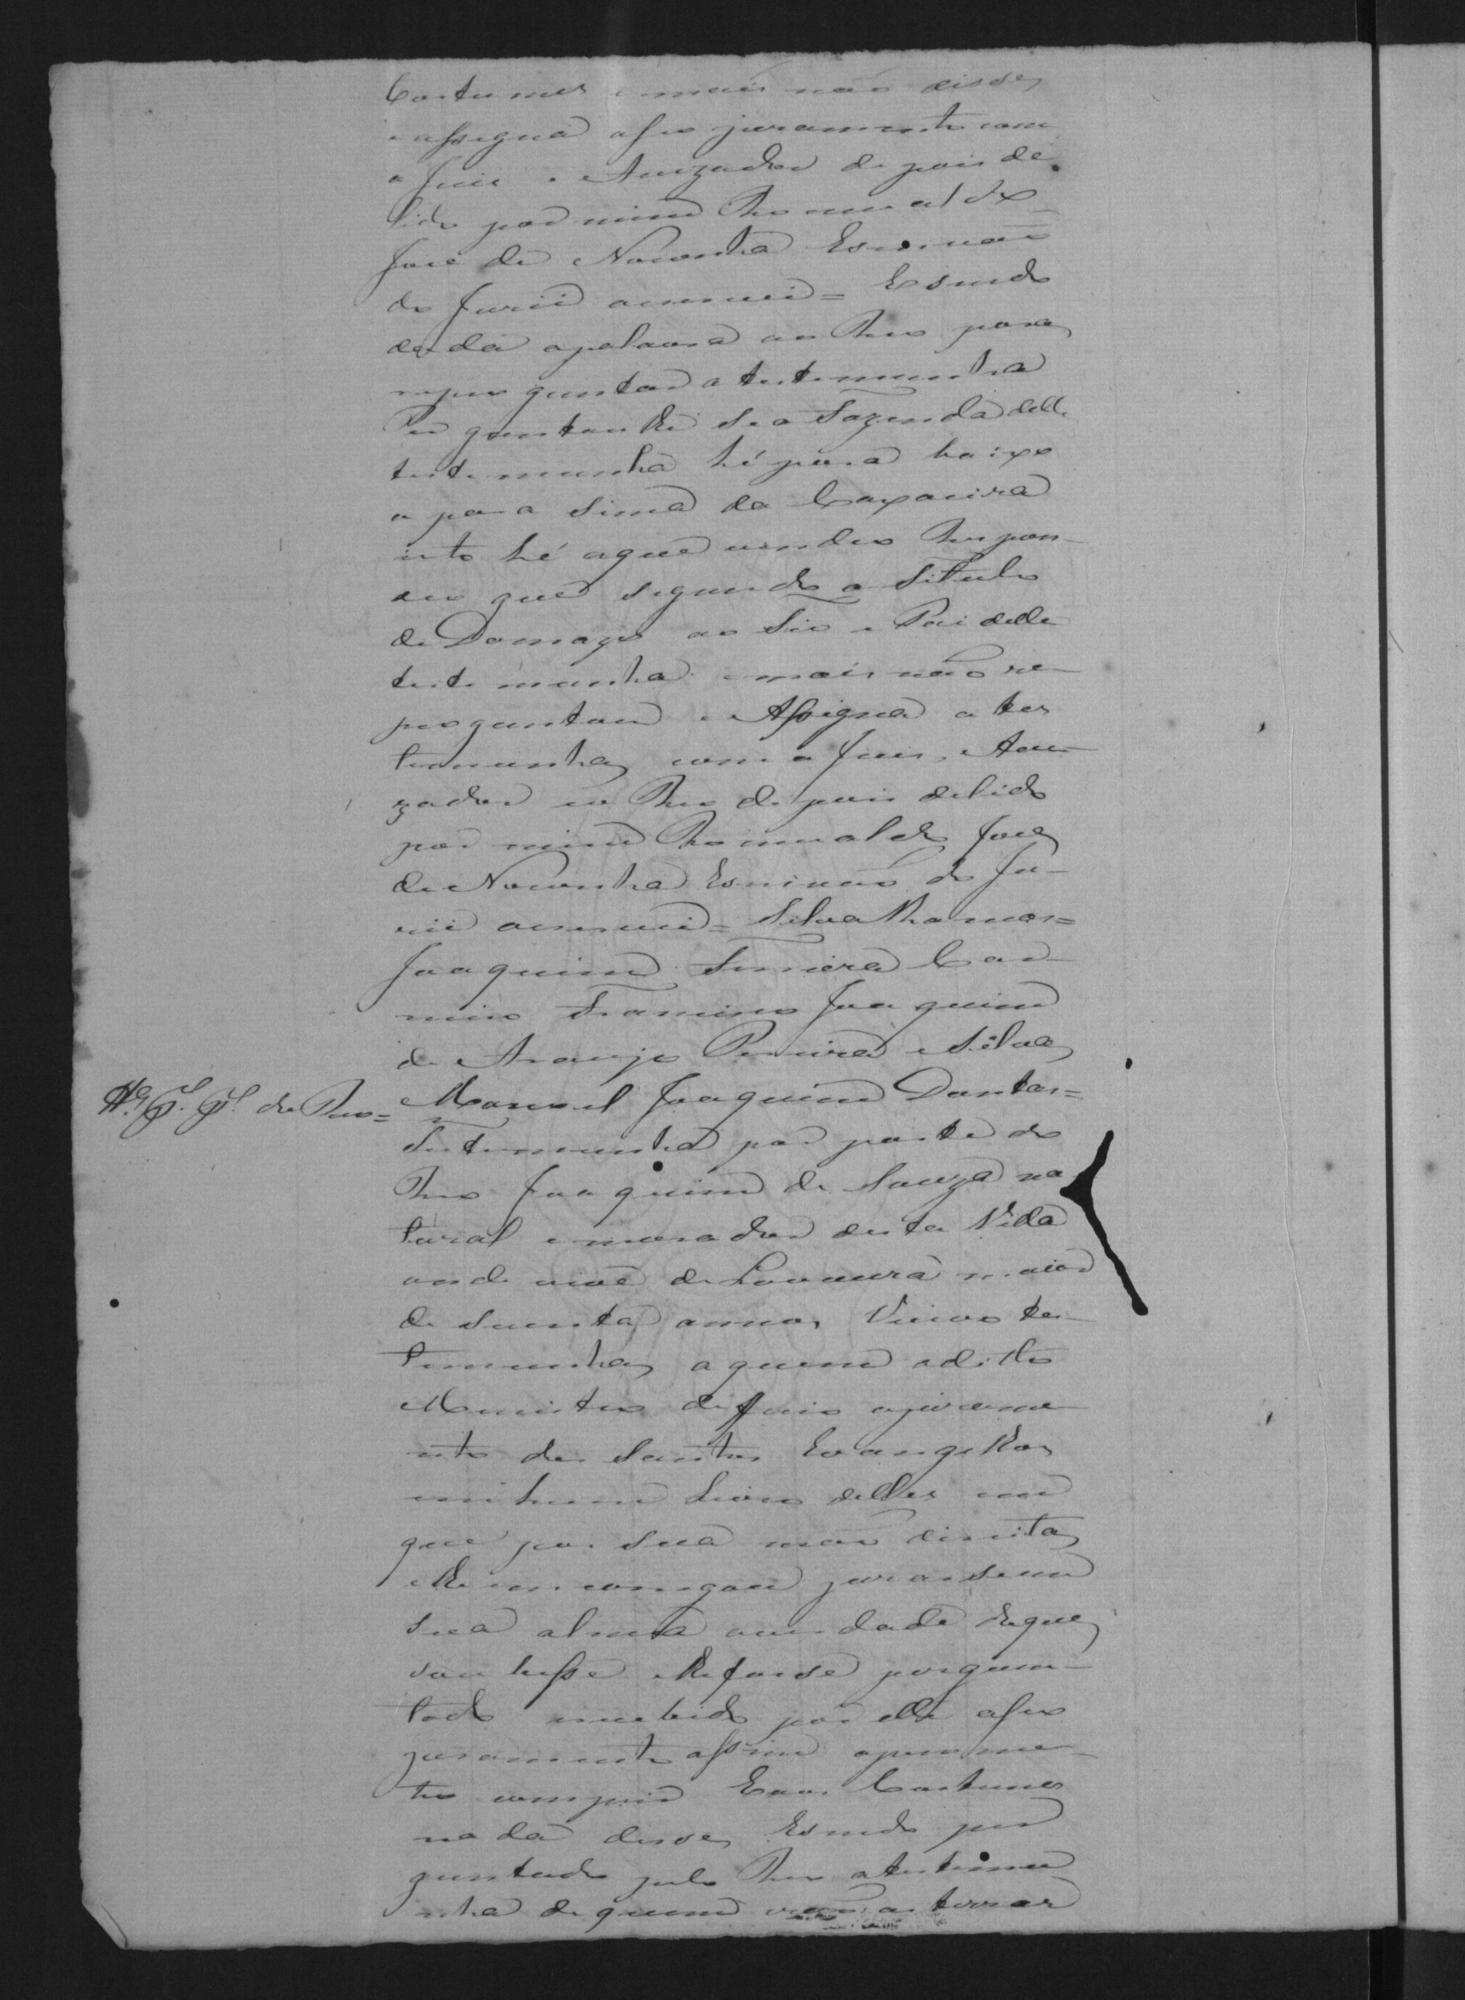 Costumes e mais não disse,
e assigna o seo juramento com
o Juis e Auzador depois de
lido por mim Romualdo
José de Noronha Escrivão
do Juiii escrevi = E sendo
dada apalavra ao Reo para
repreguntar a testemunha
Preguntou lhe se a Fazenda della
testemunha hé para baixo
o para sima da Caxoeira
isto hé aque vendeo Respon-
deo que segundo o titulo
de Domazo ao Tio e Pai della
testemunha e mais não re-
preguntou e Assigna a tes
temunha, com o Juis, e Au-
zador eo Reo depois de lido
por mim Romualdo José
de Noronha Escrivão do Ju-
iii escrevi = Silva Ramos =
Joaquim Ferreira Car-
neiro Francisco Joaquim
de Araujo Pereira e Silva,
Manoel Joaquim Dantas =
Testemunha por parte do
Reo Joaquim de Souza na
tural e morador desta Vila
onde vive de Lavoura maior
de secenta annos, Viuvo tes-
temunha, a quem odito
Menistro deferio ojurame
nto dos Santos Evangelhos
em hum Livro delles em
que pos sua mão direita,
e lhe encarregou jurasse em
sua alma averdade doque,
soubesse e lhe fosse pregun-
tado e recebido por elle o seo
juramento assim oprome-
teo comprir E aos Costumes
nada disse, E sendo pre
guntado pelo Reo atestemu
nha de quem erão as terras
do Reo =